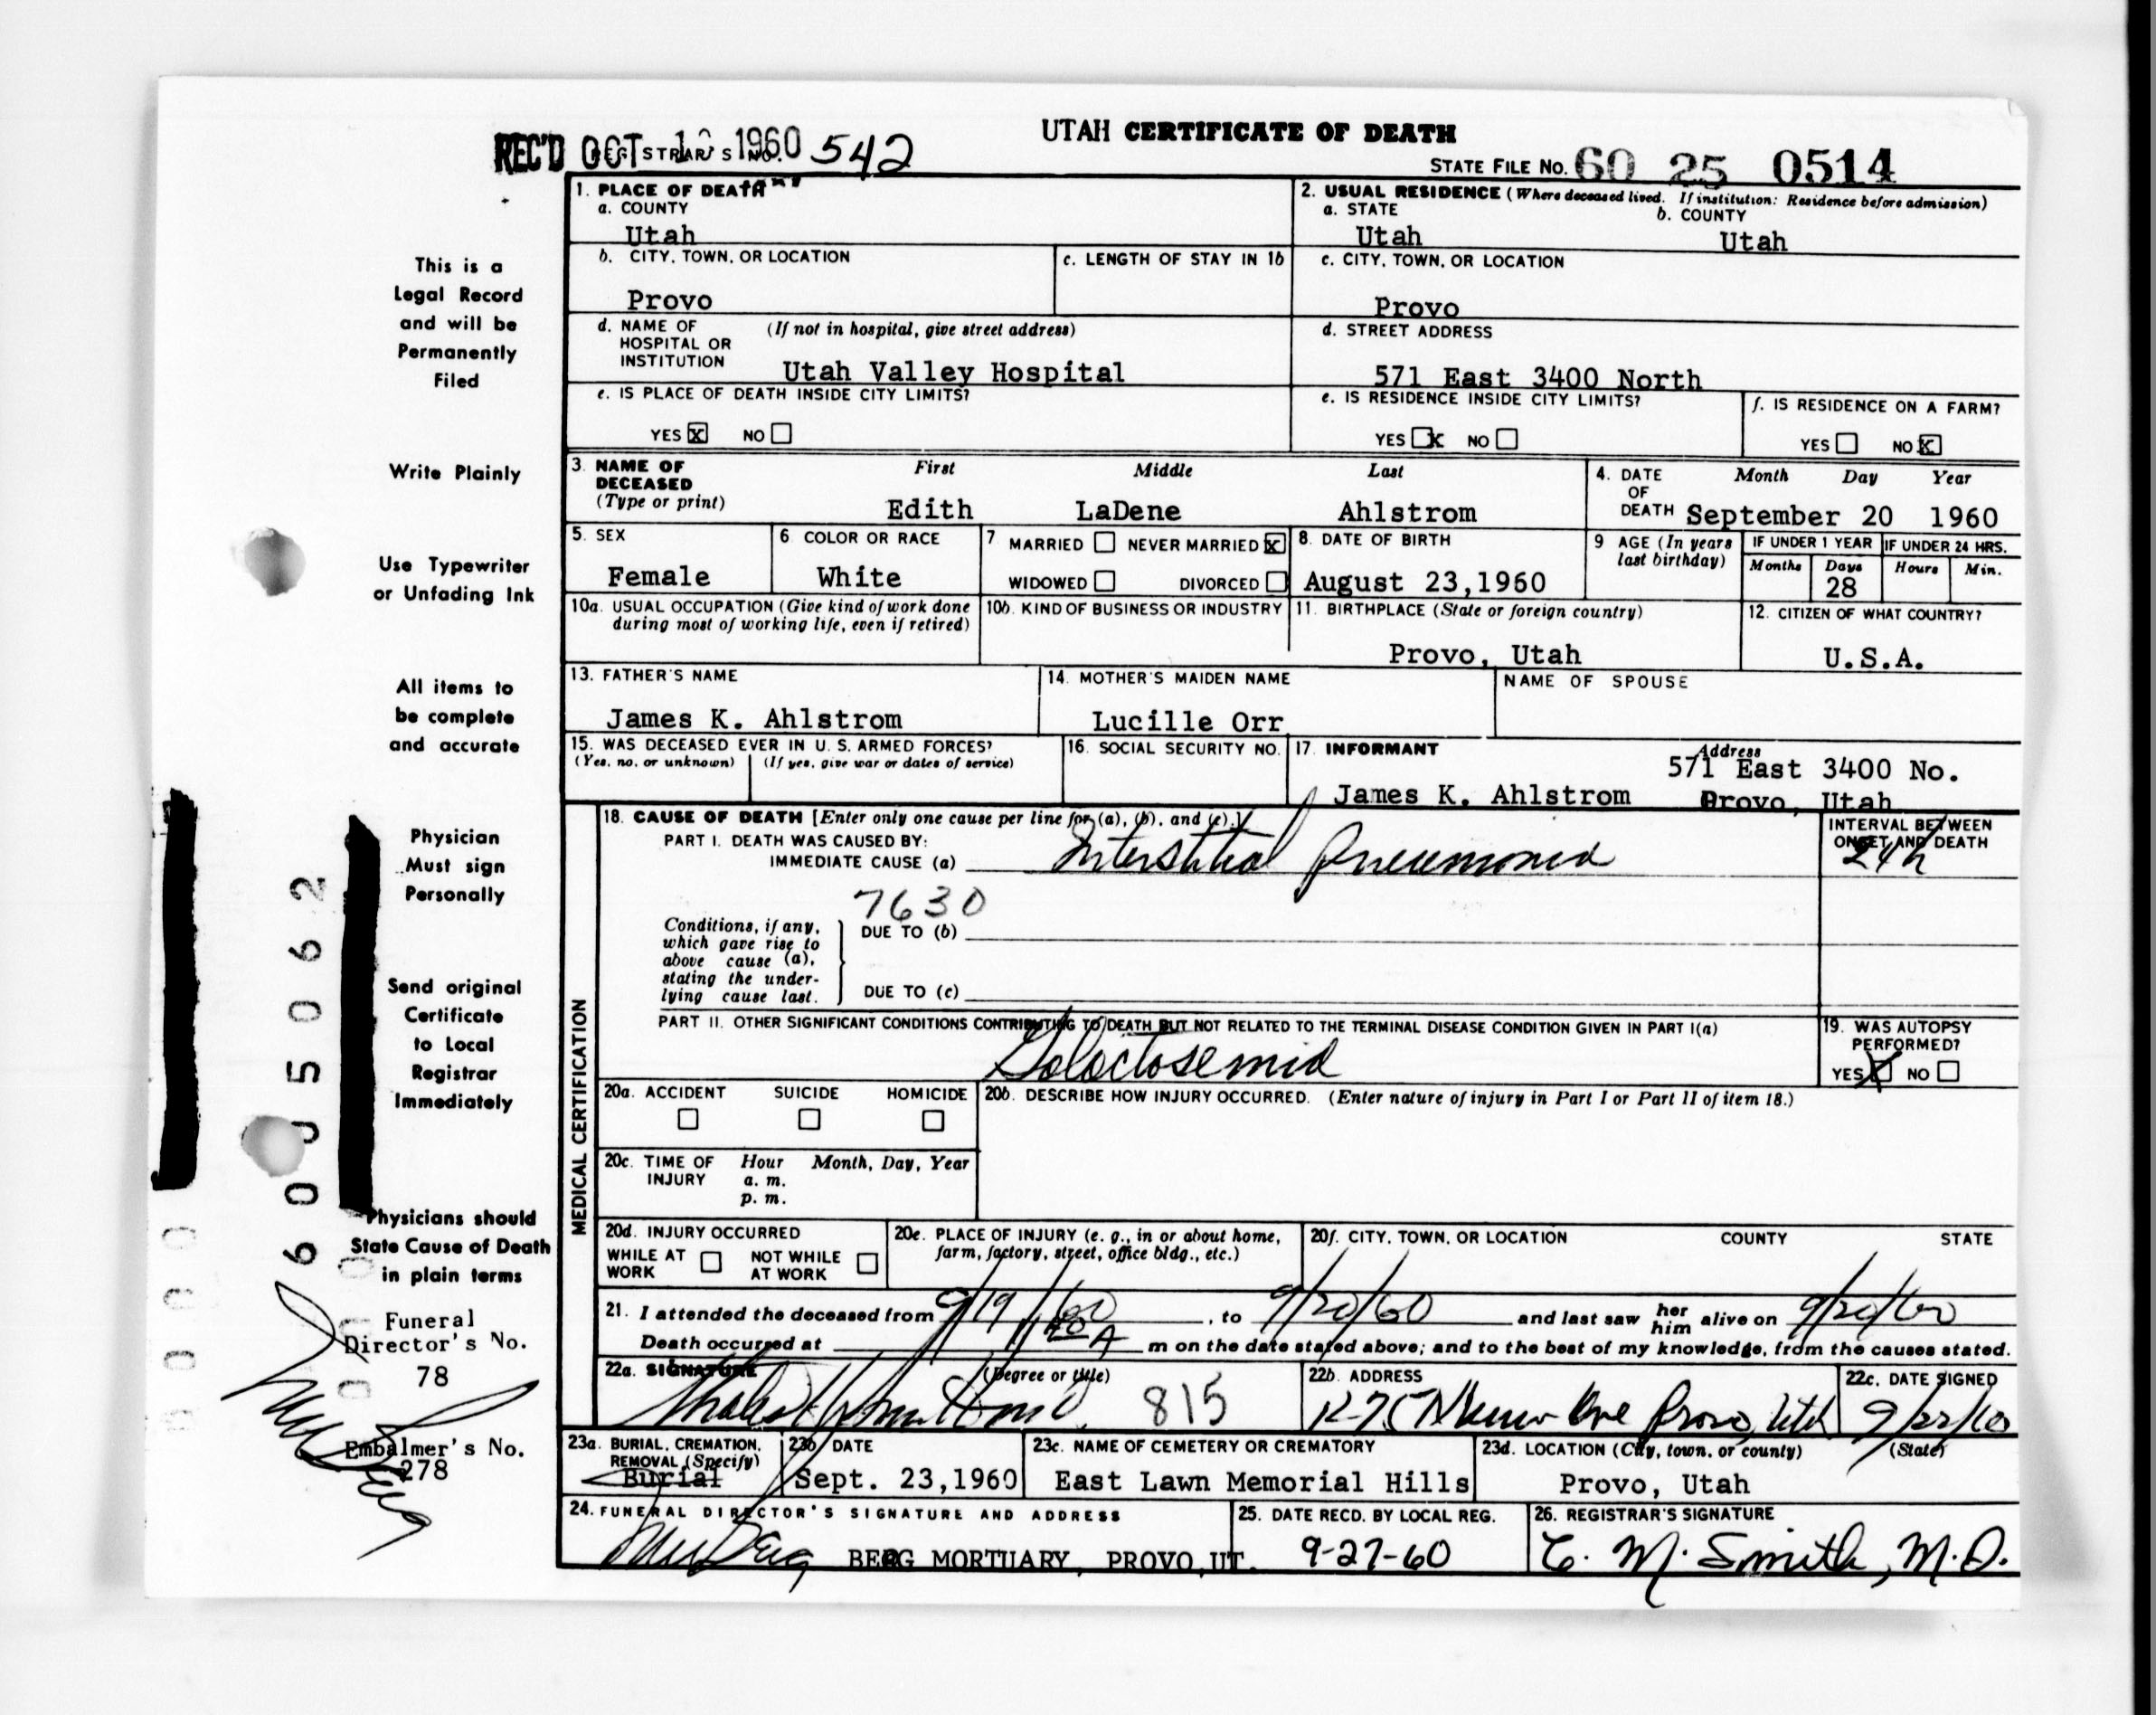 UTAH CERTIFICATE OF DEATH
REC'D OCT 1960 542
STATE FILE NO. 60 25 0514
1. PLACE OF DEATH
a. COUNTY
Utah
2. USUAL RESIDENCE (Where deceased lived. If institution: Residence before admission)
a. STATE b. COUNTY
Utah Utah
b. CITY, TOWN, OR LOCATION
Provo
c. LENGTH OF STAY IN 1b
c. CITY, TOWN, OR LOCATION
Provo
d. NAME OF (If not in hospital, give street address)
HOSPITAL OR
INSTITUTION Utah Valley Hospital
d. STREET ADDRESS
571 East 3400 North
e. IS PLACE OF DEATH INSIDE CITY LIMITS?
YES X NO
e. IS RESIDENCE INSIDE CITY LIMITS?
YES X NO
f. IS RESIDENCE ON A FARM?
YES NO X
3. NAME OF DECEASED (Type or print)
First Middle Last
Edith LaDene Ahlstrom
4. DATE OF DEATH Month Day Year
September 20 1960
5. SEX
Female
6 COLOR OR RACE
White
7 MARRIED NEVER MARRIED X
WIDOWED DIVORCED
8. DATE OF BIRTH
August 23,1960
9 AGE (In years last birthday)
IF UNDER 1 YEAR IF UNDER 24 HRS.
Months Days Hours Min.
28
10a. USUAL OCCUPATION (Give kind of work done
during most of working life, even if retired)
10b. KIND OF BUSINESS OR INDUSTRY
11. BIRTHPLACE (State or foreign country)
Provo, Utah
12. CITIZEN OF WHAT COUNTRY?
U.S.A.
13. FATHER'S NAME
James K. Ahlstrom
14. MOTHER'S MAIDEN NAME
Lucille Orr
NAME OF SPOUSE
15. WAS DECEASED EVER IN U. S. ARMED FORCES?
(Yes, no, or unknown) (If yes, give war or dates of service)
16. SOCIAL SECURITY NO.
17. INFORMANT Address
571 East 3400 No.
James K. Ahlstrom Provo, Utah
18. CAUSE OF DEATH [Enter only one cause per line for (a), (b), and (c).]
PART I. DEATH WAS CAUSED BY:
IMMEDIATE CAUSE (a) Interstitial Pneumonia
INTERVAL BETWEEN
ONSET AND DEATH
24h
7630
Conditions, if any,
which gave rise to
above cause (a),
stating the under-
lying cause last.
DUE TO (b)
DUE TO (c)
PART II. OTHER SIGNIFICANT CONDITIONS CONTRIBUTING TO DEATH BUT NOT RELATED TO THE TERMINAL DISEASE CONDITION GIVEN IN PART I(a)
Galactosemia
19. WAS AUTOPSY
PERFORMED?
YES X NO
20a. ACCIDENT SUICIDE HOMICIDE
20b. DESCRIBE HOW INJURY OCCURRED. (Enter nature of injury in Part I or Part II of item 18.)
20c. TIME OF INJURY Hour Month, Day, Year
a. m.
p. m.
20d. INJURY OCCURRED
WHILE AT WORK NOT WHILE AT WORK
20e. PLACE OF INJURY (e. g., in or about home,
farm, factory, street, office bldg., etc.)
20f. CITY, TOWN, OR LOCATION COUNTY STATE
21. I attended the deceased from 9/19/60, to 9/20/60 and last saw her him alive on 9/20/60
Death occurred at A m on the date stated above; and to the best of my knowledge, from the causes stated.
22a. SIGNATURE (Degree or title)
815
22b. ADDRESS
Provo, Utah
22c. DATE SIGNED
9/22/60
23a. BURIAL, CREMATION,
REMOVAL (Specify)
Burial
23b. DATE
Sept. 23,1960
23c. NAME OF CEMETERY OR CREMATORY
East Lawn Memorial Hills
23d. LOCATION (City, town, or county) (State)
Provo, Utah
24. FUNERAL DIRECTOR'S SIGNATURE AND ADDRESS
BERG MORTUARY, PROVO,UT.
25. DATE RECD. BY LOCAL REG.
9-27-60
26. REGISTRAR'S SIGNATURE
C. M. Smith, M.D.
MEDICAL CERTIFICATION
This is a
Legal Record
and will be
Permanently
Filed
Write Plainly
Use Typewriter
or Unfading Ink
All items to
be complete
and accurate
Physician
Must sign
Personally
Send original
Certificate
to Local
Registrar
Immediately
Physicians should
State Cause of Death
in plain terms
Funeral
Director's No.
78
Embalmer's No.
278